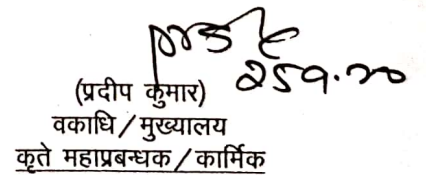 (प्रदीप कुमार)
वकाधि / मुख्यालय
कृते महाप्रबन्धक / कार्मिक